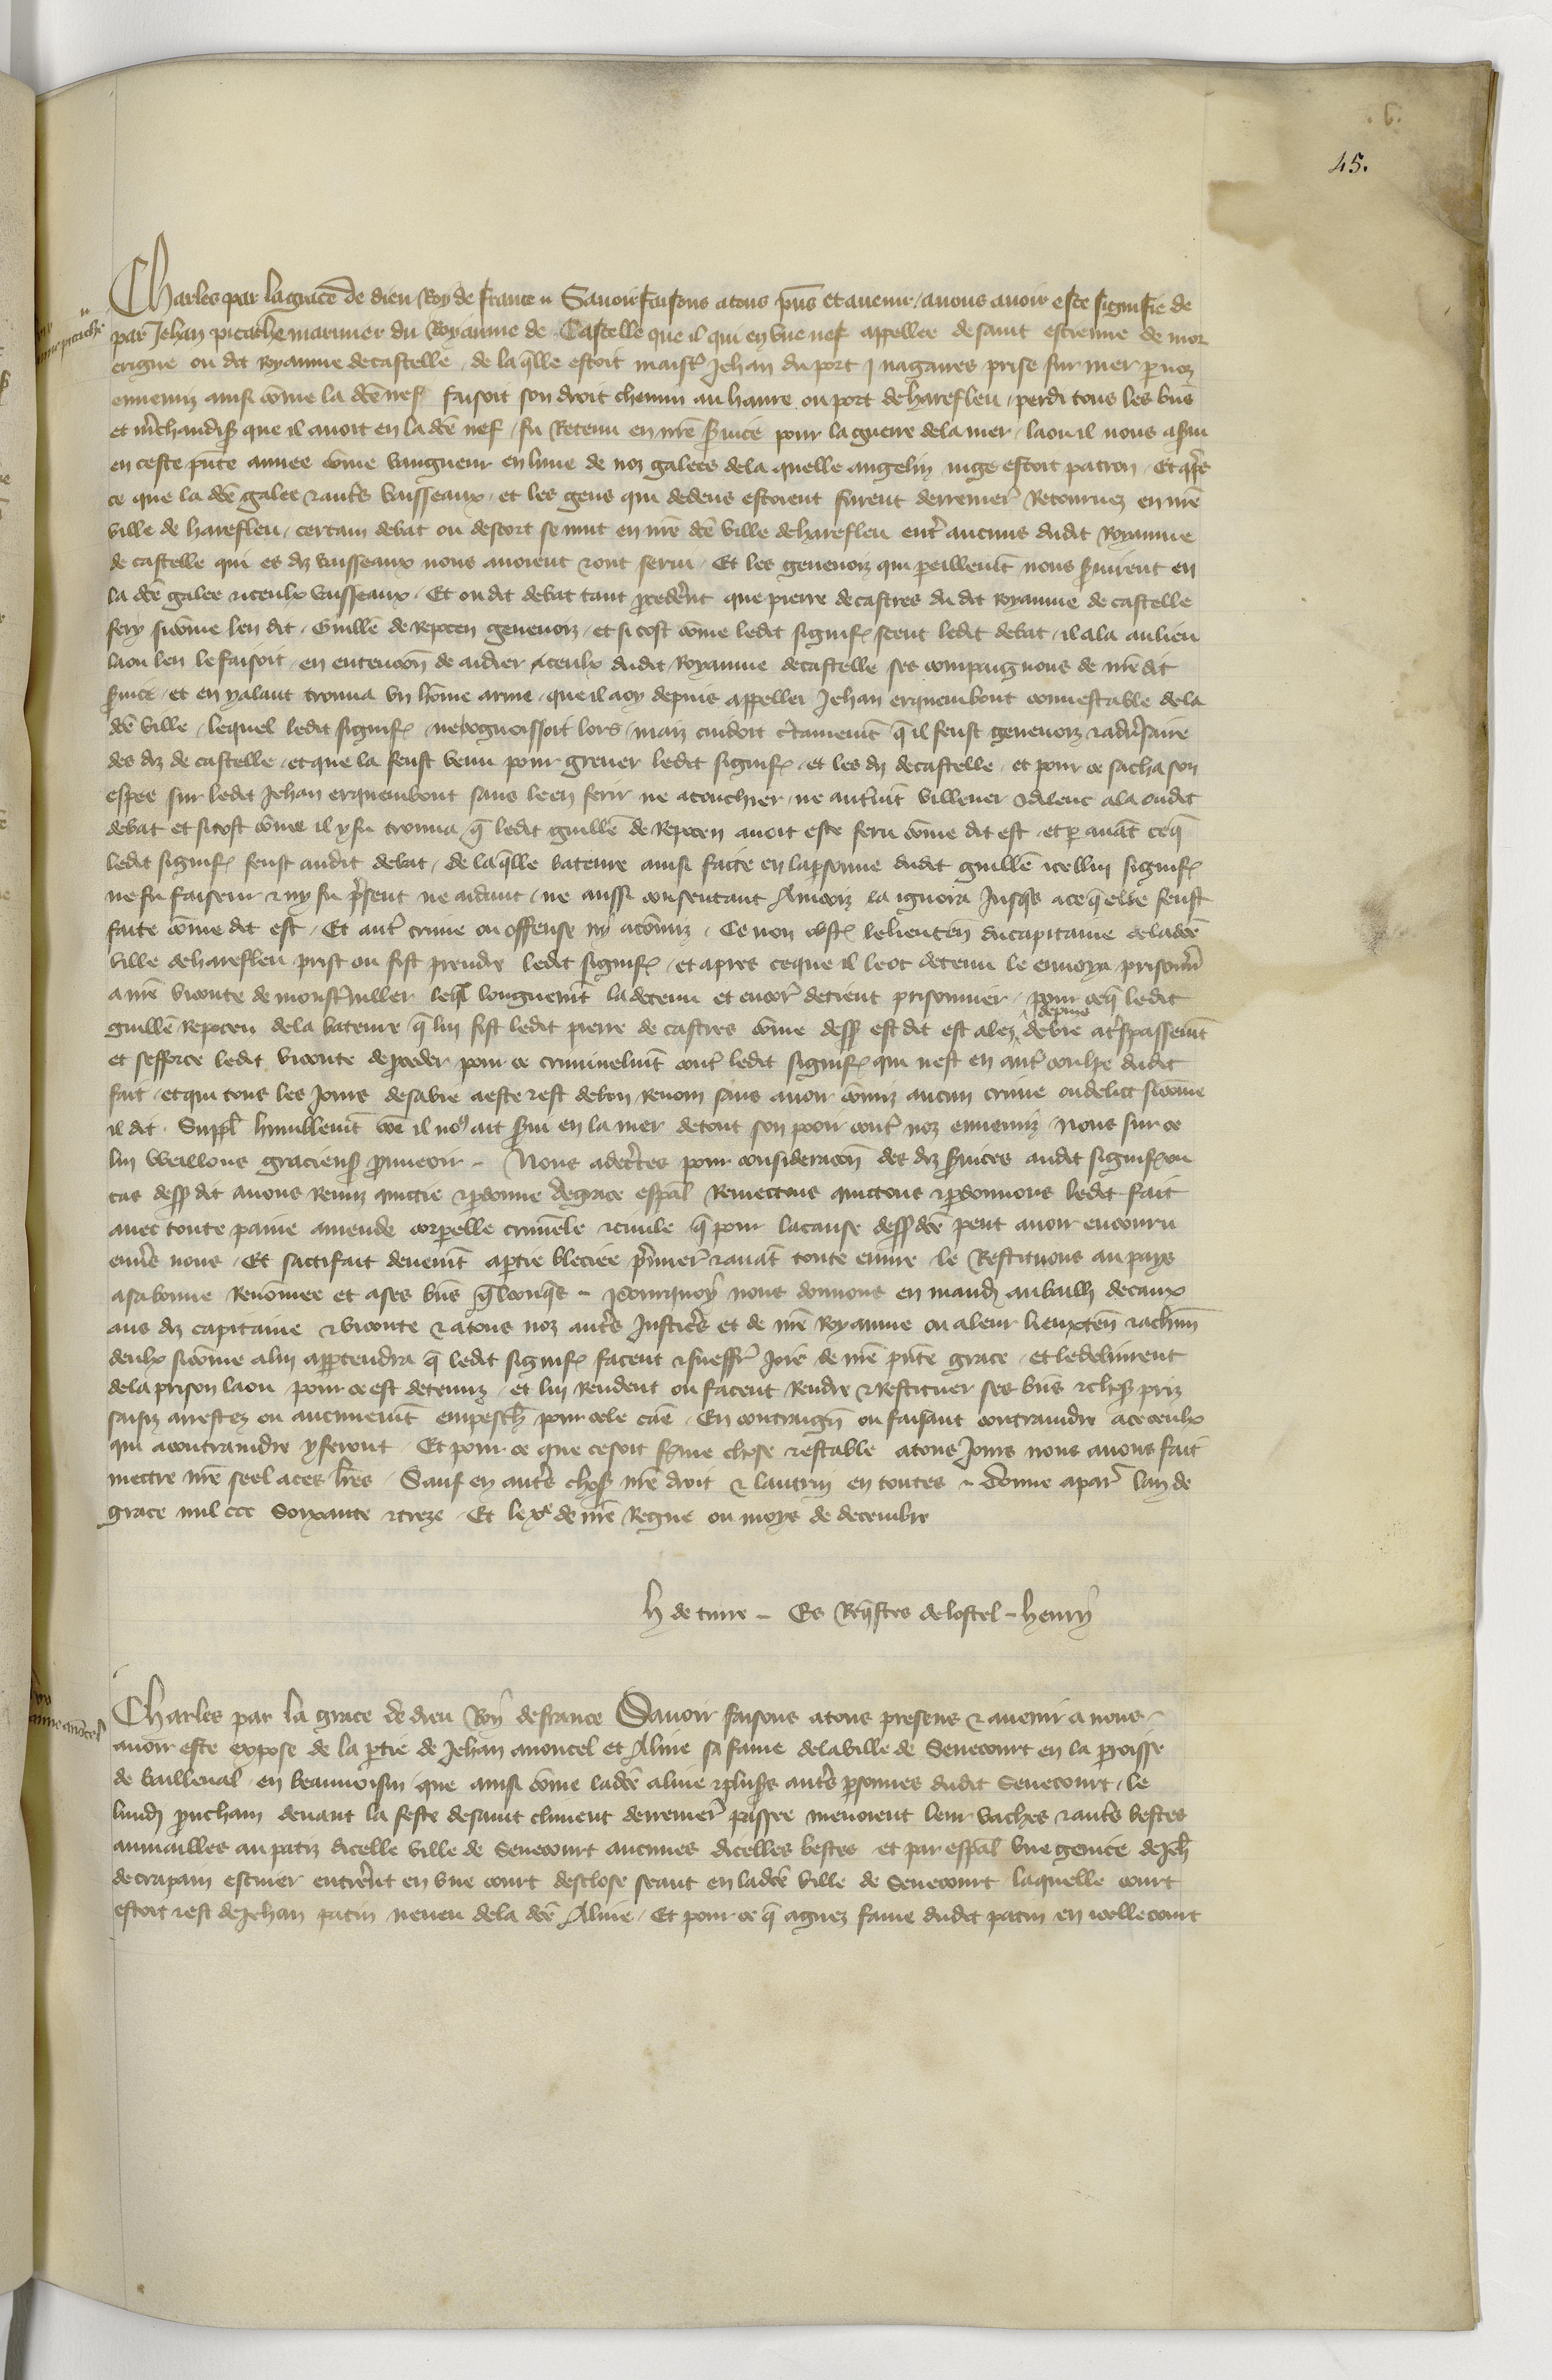 . 6 .
45.
Charles par la grace de dieu Roy de france Savoir faisons a tous pñs et avenir / a nous avoir este signifie de
par Jehan picache marinier du Royaume de Castelle que il qui en une nef appellee de saint estienne de mor
erigue ou dit Royaume de castelle / de la q̃lle estoit maistr̉ Jehan du port j nagaires prise sur mer p noz
ennemiz ainsi com̃e la dc̃e nef faisoit son droit chemin au havre ou port de harefleu / perdi tous les bñs
et m̃chandis̃ que il avoit en la dc̃e nef / fu Retenu en nr̃e s̃vice pour la guerre de la mer / la ou il nous a s̃vi
en ceste p̃nte annee com̃e vaugueur en lune de noz galees de la quelle angelin juge estoit patron / Et ap̃s
ce que la dc̃e galee et aut̃s vaisseaux et les gens qui dedens estoient furent derremer̃ Retournez en nr̃e
ville de harefleu / certain debat ou descort se mut en nr̃e dc̃e ville de harefleu ent̃ aucuns dudit Royaume
de castelle qui es dz vaisseaux nous avoient et ont servi / Et les genevoiz qui peillem̃t nous s̃virent en
la dc̃e galee et iceulx vaisseaux / Et ou dit debat tant p̃ceder̃nt que pierre de castres du dit Royaume de castelle
fery sicom̃e len dit / Guillẽ de Repocen genevoiz / et si tost com̃e ledit signif̃ sceut ledit debat / il ala au lieu
la ou len le faisoit / en entencõn de aidier iceulx dudit Royaume de castelle ses compaignons de nr̃e dit
s̃vice / et en y alant trouva un hõme arme / que il a oy depuis appeller Jehan erquembout connestable de la
dc̃e ville / lequel ledit signif̃ ne cognoissoit lors / maiz cuidoit c̃tainem̃t q̃ il feust genevoiz et adṽsaire
des dz de castelle / et que la feust venu pour grever ledit signif̃ / et les dz de castelle / et pour ce sacha son
espee sur ledit Jehan erquembout sans leen ferir ne atouchier / ne autrem̃t villener et dilenc ala oudit
debat et si tost com̃e il y fu trouva q̃ ledit guillẽ de Repocen avoit este feru com̃e dit est / et p avãt ce q̃
ledit signif̃ feust audit debat / de la q̃lle bateure ainsi faite en la p̃sonne dudit guillẽ icellui signif̃
ne fu faiseur et ny fu p̃sent ne aidant / ne aussi consentant Aincoiz la ignora Jusq̃s a ce q̃ elle feust
faite com̃e dit est / Et aut̃ crime ou offense ny a com̃iz / Ce non obst̃ le lieuteñ du capitaine de la dc̃e
ville de harefleu prist ou fist prendre ledit signif̃ / et apres ce que il leot detenu le envoya prisonñ
a nr̃e viconte de monst̃viller leq̃l longuem̃t la detenu et encor̃ detient prisonnier / pour ce q̃ ledit
guillẽ Repocen de la bateure q̃ lui fist ledit pierre de castres com̃e dess̃ est dit est alez depuis de vie a t̃spassem̃t
et sefforce ledit viconte de p̃ceder pour ce criminelm̃t cont̃ ledit signif̃ qui nest en aut̃ coulpe dudit
fait / et qui tous les Jours de sa vie a este et est de bon renom sans avoir com̃iz aucun crime ou delict sicom̃e
il dit / Suppl̃ humblem̃t cõe il no⁹ ait s̃vi en la mer de tout son pooir cont̃ noz ennemiz / Nous sur ce
lui weillons gracieus̃ p̃rveoir / Nous adcertes pour consideracõn des dz s̃vices audit signif̃ ou
cas dess̃ dit avons Remiz quictie et p̃donne de grace esp̃al Remectons quictons et p̃donnons ledit fait
avec toute paine amende corporelle crimẽle et civile q̃ pour la cause dess̃ dc̃e peut avoir encouru
env̉s nous / Et sattisfait devem̃t a p̃tie bleciee p̃mier̃ et avãt toute euvre le Restituons au pays
a sa bonne Renom̃ee et a ses bñs q̃lconq̃s / Pourquoy nous donnons en mand̃ au bailli de caux
aus dz capitaine et viconte et a tous noz aut̃s Justic̃s et de nr̃e Royaume ou a leur lieuxteñ et a chũn
deulx sicom̃e a lui app̃tendra q̃ ledit signif̃ facent et sueffr̃ joir̃ de nr̃e p̃nte grace / et le delivrent
de la prison la ou pour ce est detenuz / et lui Rendent ou facent Rendre et Restituer ses bñs et chos̃ priz
saisiz arrestez ou aucunem̃t empesch̃ pour cele cãe / En contraign̄ ou faisant contraindre a ce ceulx
qui a contraindre y seront / Et pour ce que ce soit f̃me chose et estable a tous Jours nous avons fait
mectre nr̃e seel a ces l̃res / Sauf en aut̃s chos̃ nr̃e droit et lautruy en toutes / donne a par̃ lan de
grace mil ccc soixante et treze / Et le xe de nr̃e Regne ou moys de decembre
h de cuire / Es Req̃stes de lostel / henry
Charles par la grace de dieu Roy de france Savoir faisons a tous presens et avenir a nous
avoir este expose de la p̃tie de Jehan anoncel et Aline sa fame de la ville de Senecourt en la p̃roisse
de bailleval en beauvoisin que ainsi com̃e la dc̃e aline et plus̃s aut̃s p̃sonnes dudit Senecourt / le
lundj p̃uchain devant la feste de saint climent derremer̃ passee menoient leur vaches et aut̃s bestes
aumailles au patiz dicelle ville de Senecourt aucunes dicelles bestes et par esp̃al une genice de Jeh̃
de crapain escuier entrer̃nt en une court desclose seant en la dc̃e ville de Senecourt laquelle court
estoit et est de Jehan patin neveu de la dc̃e Aline / Et pour ce q̃ agnez fame dudit patin en icelle court